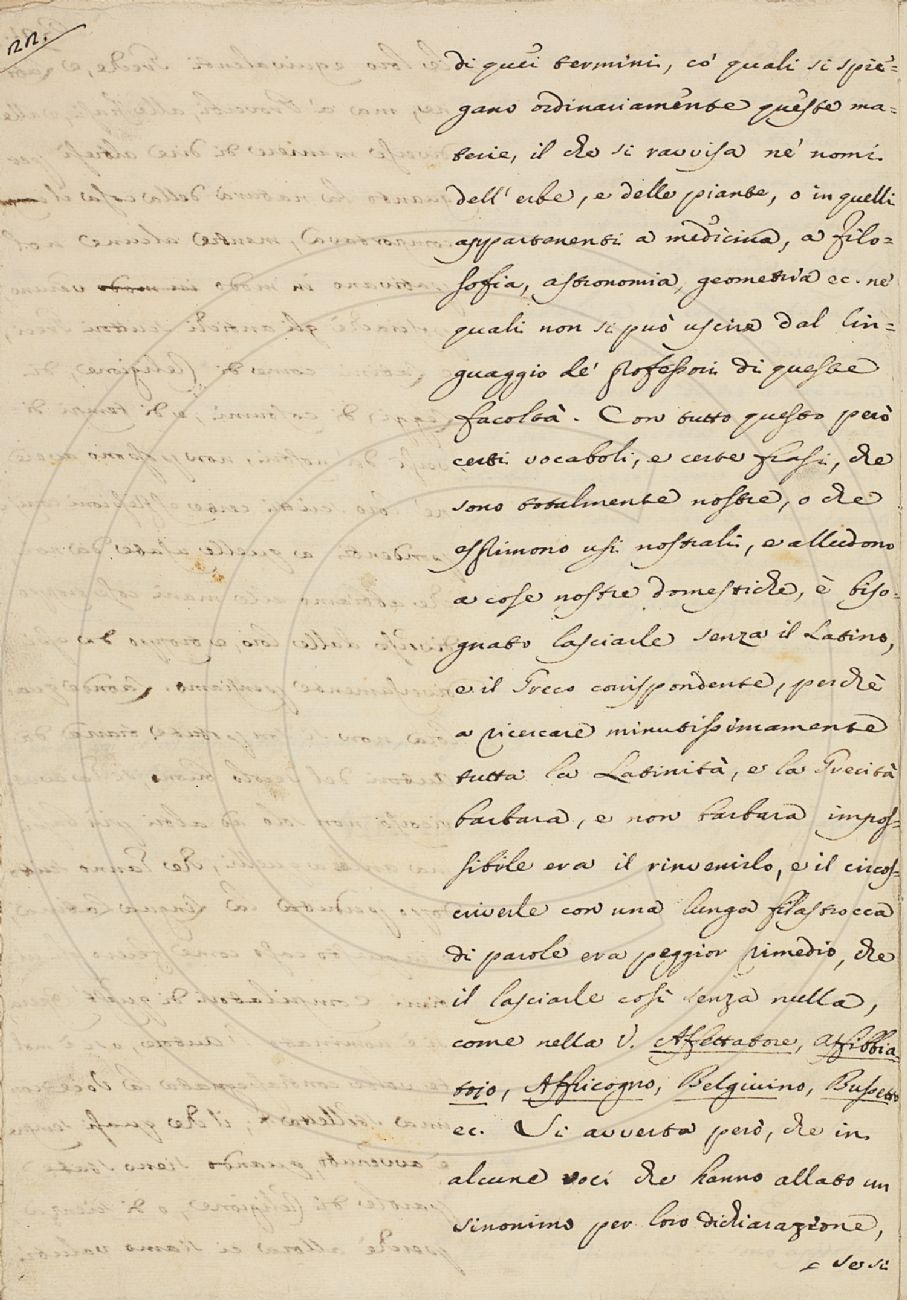 22.
di quei termini, co' quali si spie=
gano ordinariamente queste ma=
terie, il che si ravvisa ne' nomi
dell' erbe, e delle piante, o in quelli
appartenenti a medicina, a filo=
sofia, astronomia, geometria ec. ne'
quali non si può uscire dal lin=
guaggio de' professori di queste
facoltà. Con tutto questo però
certi vocaboli, e certe frasi, che
sono totalmente nostre, o che
esprimono usi nostrali, e alludono
a cose nostre domestiche, è biso=
gnato lasciarle senza il Latino,
e il Greco corrispondente, perchè
a ricercare minutissimamente
tutta la Latinità, e la Grecità
barbara, e non barbara impos=
sibile era il rinvenirlo, e il circos=
criverle con una lunga filastrocca
di parole era peggior rimedio, che
il lasciarle così senza nulla,
come nella V. Affettatore, Affibbia
toio, Affricogno, Belgivino, Bussetto
ec. Si avverta però, che in
alcune voci che hanno allato un
sinonimo per loro dichiarazione,
se si